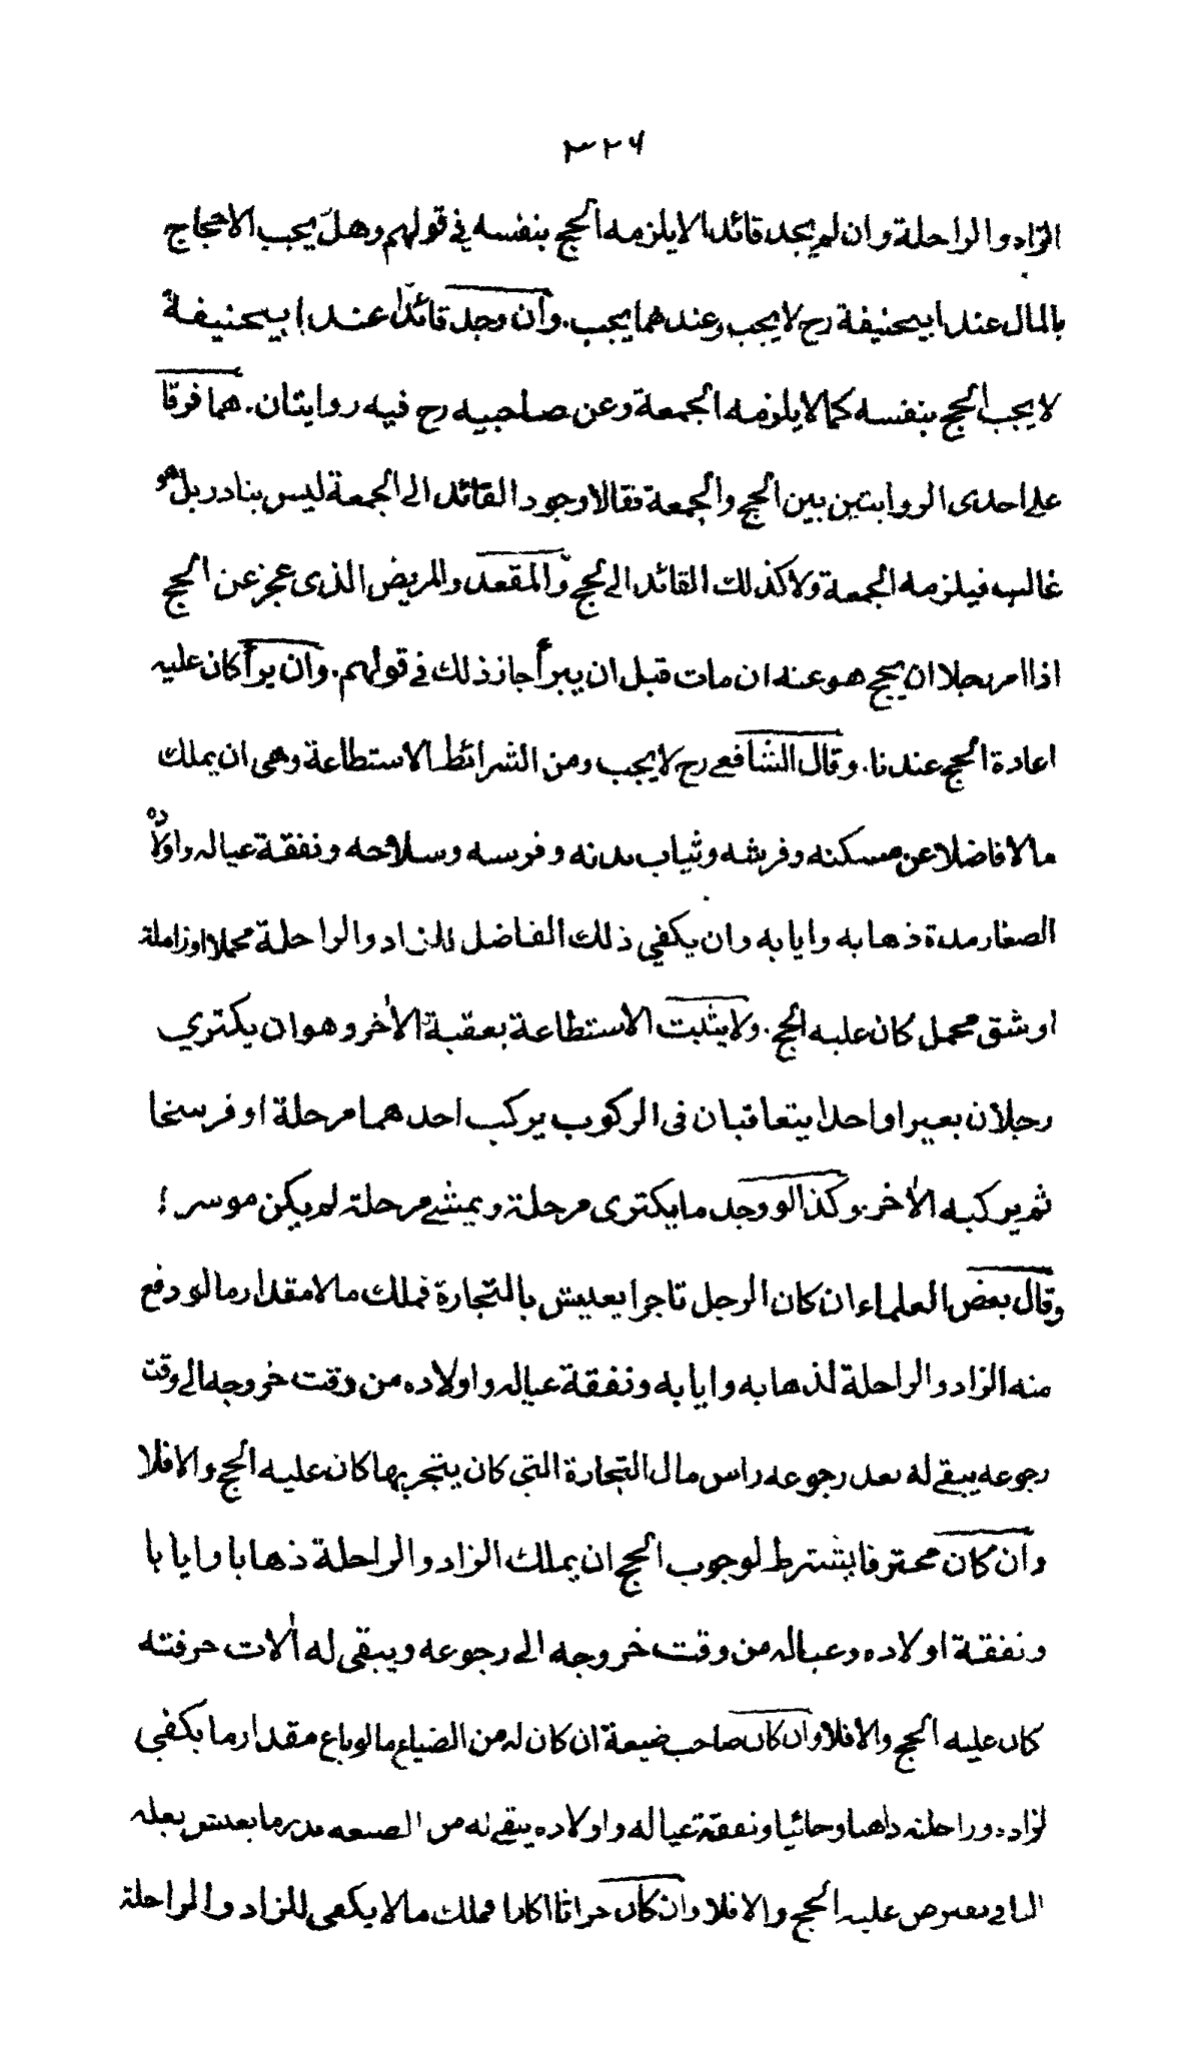 ٣٢٦
الزاد والراحلة وان لم يجد قائدا لا يلزمه الحج بنفسه في قولهم وهل يجب الاحجاج
بالمال عند ابيحنيفة رح لا يجب وعندهما يجب. وان وجد قائدًا عند ابيحنيفة
لا يجب الحج بنفسه كما لا يلزمه الجمعة وعن صاحبيه رح فيه روايتان. هما فرقا
على احدى الروايتين بين الحج والجمعة فقالا وجود القائد الى الجمعة ليس بنادر بل هو
غالب فيلزمه الجمعة ولا كذلك القائد الى الحج والمقعد والمريض الذى عجز عن الحج
اذا امر رجلا ان يحج هو عنه ان مات قبل ان يبرأ جاز ذلك في قولهم. وان برأ كان عليه
اعادة الحج عندنا. وقال الشافعي رح لا يجب ومن الشرائط الاستطاعة وهى ان يملك
مالا فاضلا عن مسكنه وفرشه وثياب بدنه وفرسه وسلاحه ونفقة عياله واولاده
الصغار مدة ذهابه وايابه وان يكفي ذلك الفاضل للزاد والراحلة محملا او زاملة
او شق محمل كان عليه الحج. ولا يثبت الاستطاعة بعقبة الأخر وهو ان يكتري
رجلان بعيرا واحدا يتعاقبان فى الركوب يركب احدهما مرحلة او فرسخا
ثم يركبه الأخر. وكذا لو وجد ما يكترى مرحلة ويمشي مرحلة لم يكن موسرا
وقال بعض العلماء ان كان الرجل تاجرا يعيش بالتجارة فملك مالا مقدار ما لو دفع
منه الزاد والراحلة لذهابه وايابه ونفقة عياله واولاده من وقت خروجه الى وقت
رجوعه يبقى له بعد رجوعه راس مال التجارة التي كان يتجر بها كان عليه الحج والا فلا
وان كان محترفا يشترط لوجوب الحج ان يملك الزاد والراحلة ذهابا وايابا
ونفقة اولاده وعياله من وقت خروجه الى رجوعه ويبقى له ألات حرفته
كان عليه الحج والا فلا وان كان صاحب ضيعة ان كان له من الضياع ما لو باع مقدار ما يكفي
لزاده وراحلته ذاهبا وجائيا ونفقة عياله واولاده يبقى له من الضيعة قدر ما يعيش بغلة
الباقي يفترض عليه الحج والا فلا وان كان حراثا اكارا فملك مالا يكفى للزاد والراحلة